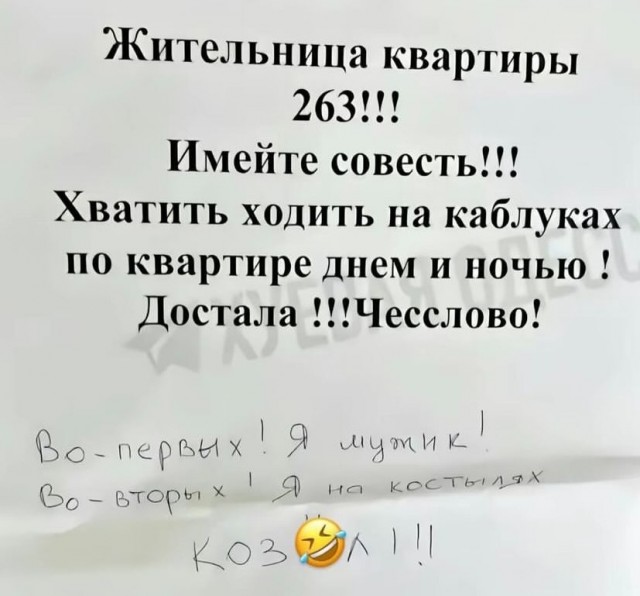 Жительница квартиры
263!!!
Имейте совесть!!!
Хватить ходить на каблуках
по квартире днем и ночью !
Достала !!!Чесслово!
ХУЕВАЯ ОДЕСС
Во-первых! Я мужик!
Во-вторых! Я на костылях
КОЗ🤣Л!!!